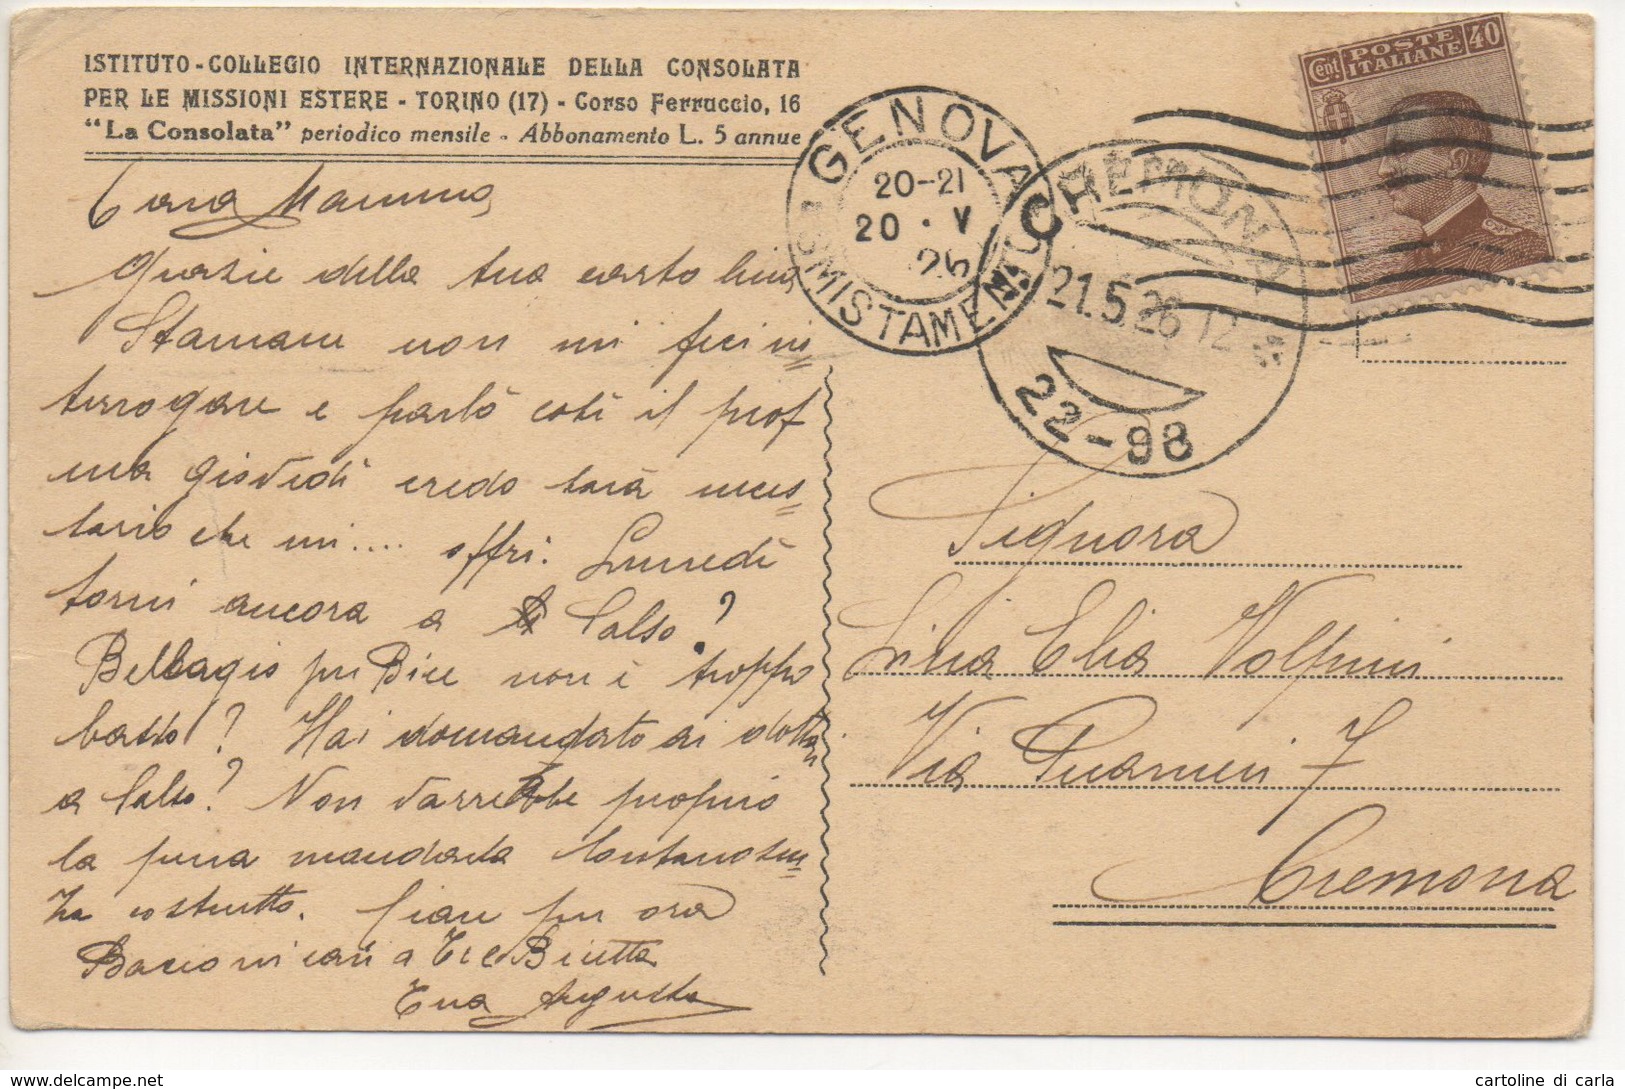 ISTITUTO-COLLEGIO INTERNAZIONALE DELLA CONSOLATA
PER LE MISSIONI ESTERE - TORINO (17) - Corso Ferruccio, 16
"La Consolata" periodico mensile - Abbonamento L. 5 annue
Cara Mamma,
Grazie della tua cartolina
Stamane non mi feci in=
terrogare e parlò così il prof
ma giovedì credo sarà neces=
sario che mi.... offri. Lunedì
torni ancora a Salso?
Bellagio per Bice non è troppo
basso? Hai domandato ai dottori
a Salso? Non varrebbe proprio
la pena mandarla lontano sen=
za costrutto. Ciau per ora
Bacioni cari a Te e Bicetta
Tua Augusta
GENOVA
20-21
20 · V
26
SMISTAMENTO
CREMONA
21.5.26 12
22-98
Cent. POSTE ITALIANE 40
Signora
Livia Elia Volpini
Via Guarneri 7
Cremona
cartoline di carla